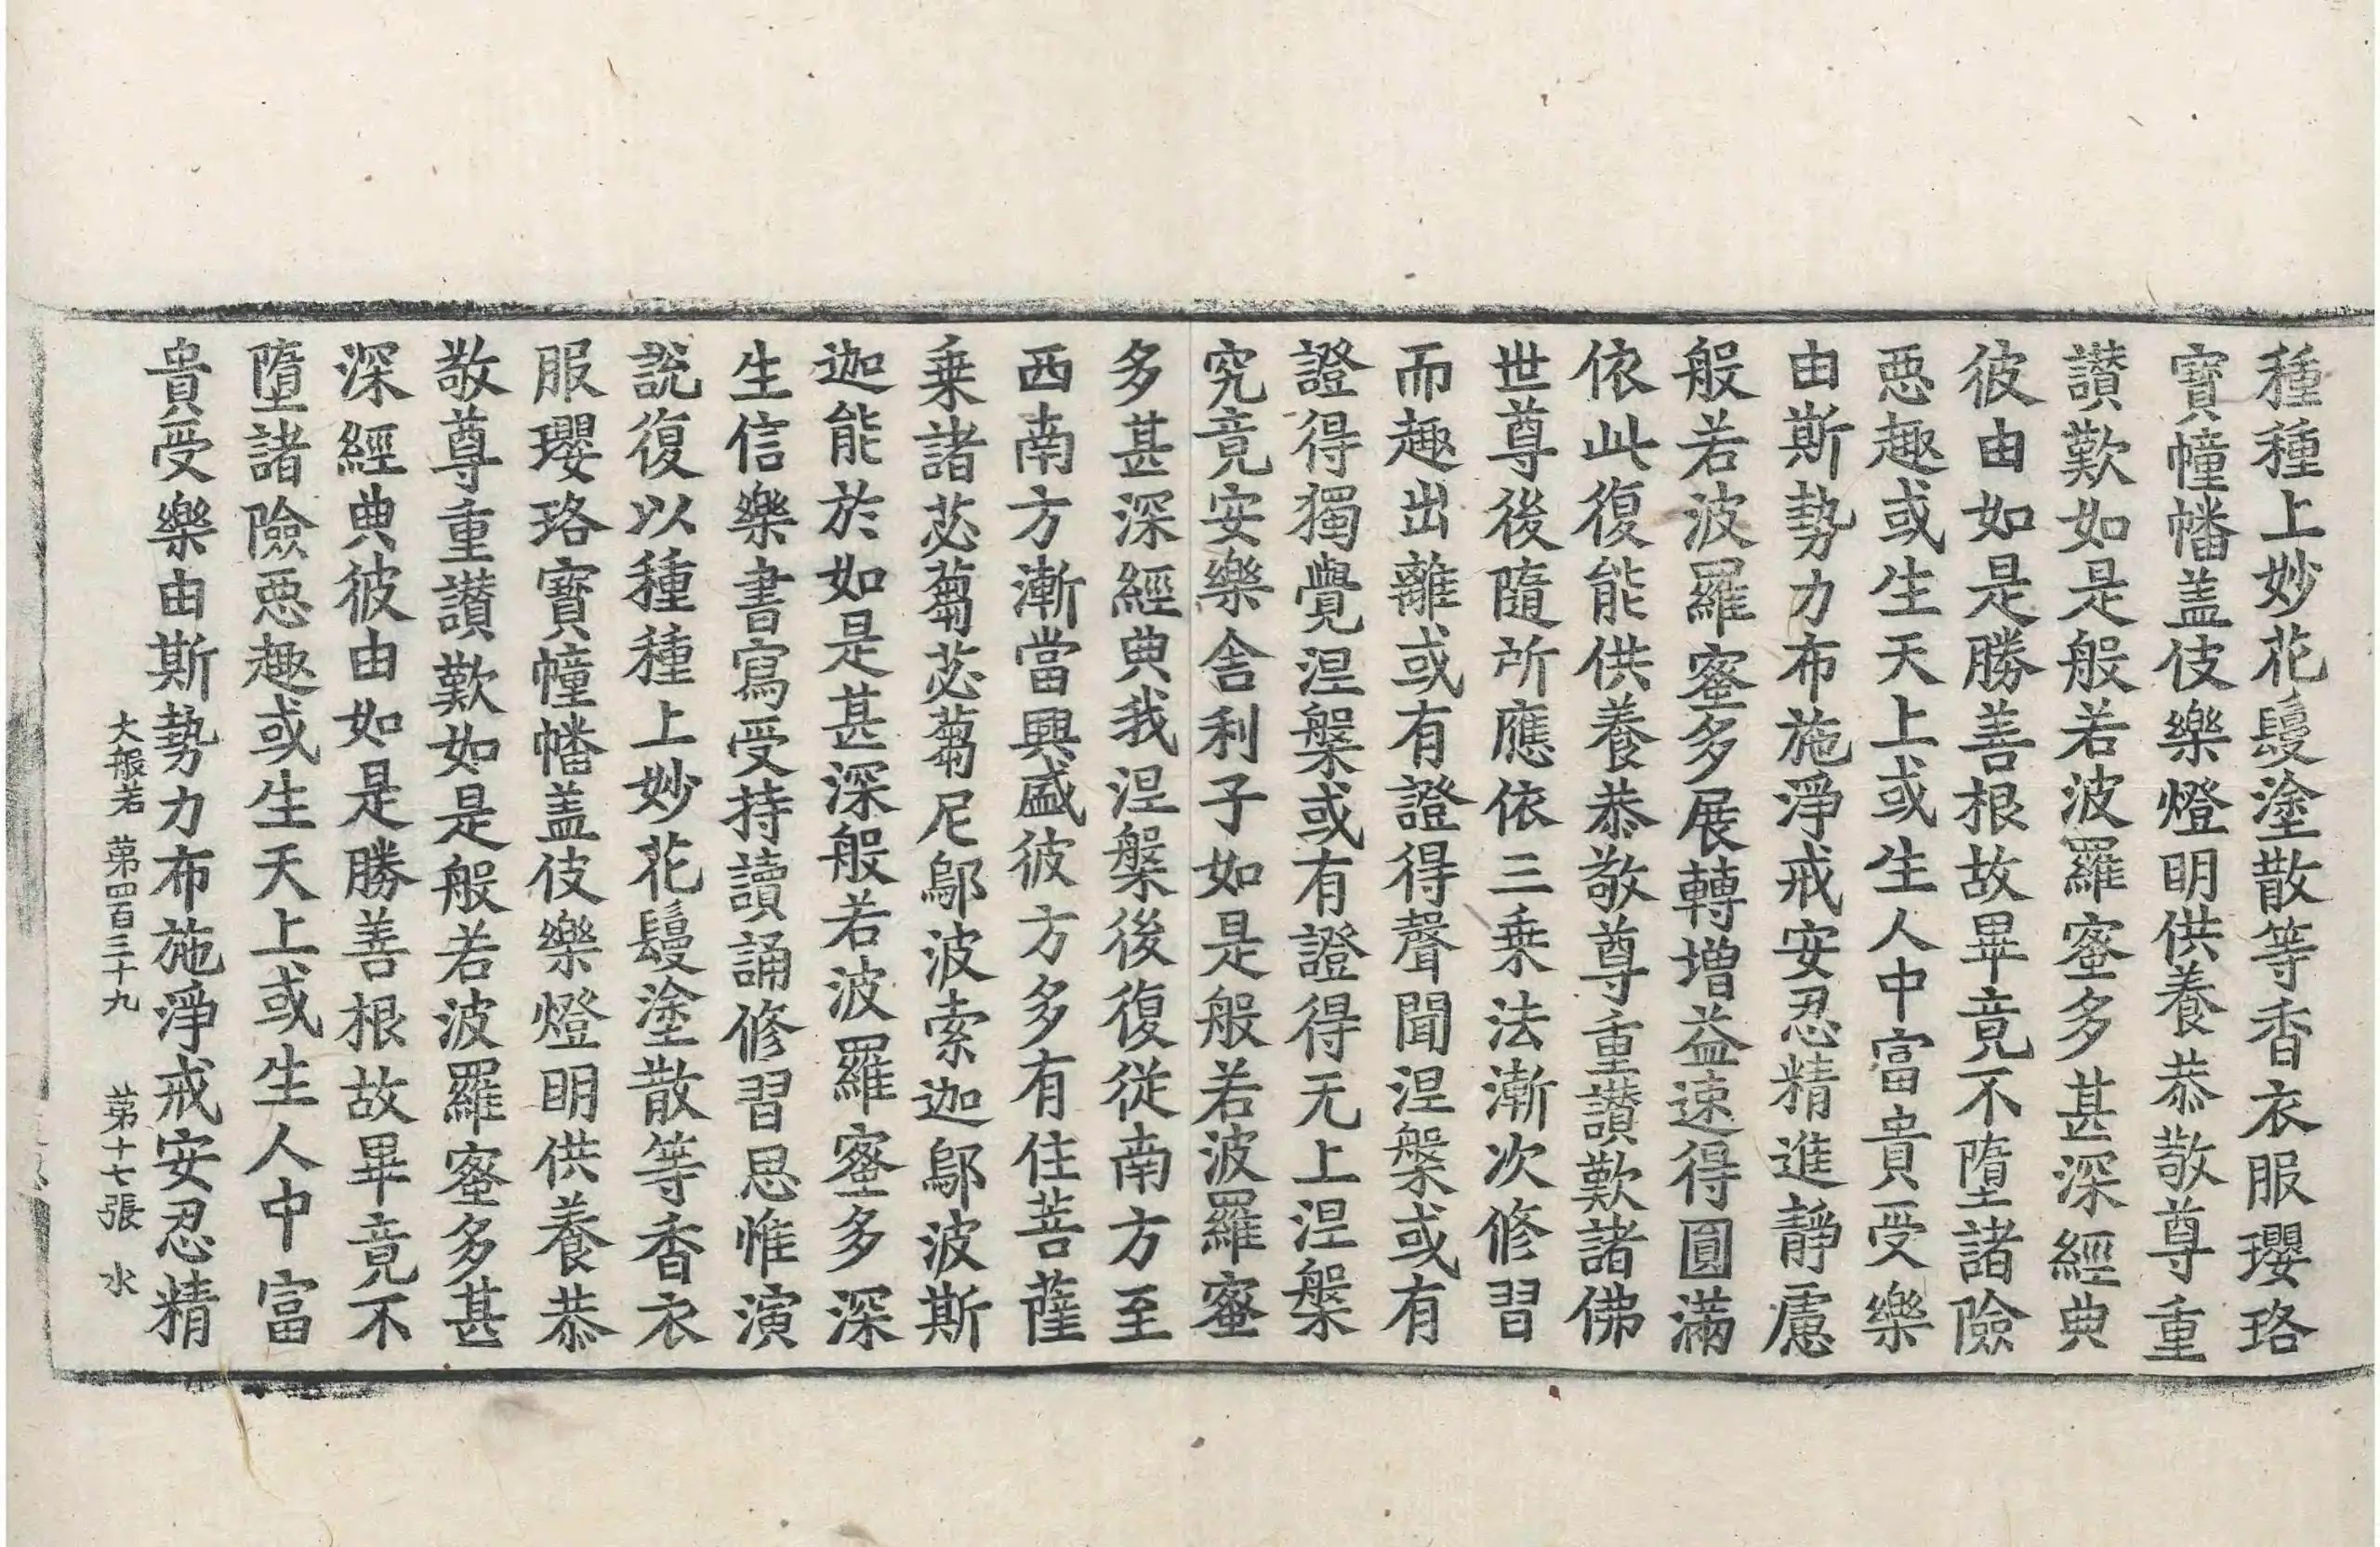 種種上妙花鬘塗散等香衣服瓔珞
寶幢幡盖伎樂燈明供養恭敬尊重
讃歎如是般若波羅蜜多甚深經典
彼由如是勝善根故畢竟不墮諸險
惡趣或生天上或生人中富貴受樂
由斯勢力布施淨戒安忍精進靜慮
般若波羅蜜多展轉增益速得圓滿
依此復能供養恭敬尊重讃歎諸佛
世尊後隨所應依三乗法漸次修習
而趣出離或有證得聲聞涅槃或有
證得獨覺涅槃或有證得无上涅槃
究竟安樂舍利子如是般若波羅蜜
多甚深經典我涅槃後復從南方至
西南方漸當興盛彼方多有住菩薩
乗諸苾蒭苾蒭尼鄔波索迦鄔波斯
迦能於如是甚深般若波羅蜜多深
生信樂書寫受持讀誦修習思惟演
說復以種種上妙花鬘塗散等香衣
服瓔珞寶幢幡盖伎樂燈明供養恭
敬尊重讃歎如是般若波羅蜜多甚
深經典彼由如是勝善根故畢竟不
墮諸險惡趣或生天上或生人中富
貴受樂由斯勢力布施淨戒安忍精
大般若 苐四百三十九 苐十七張 水